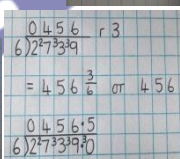 0456 r 3
6)2²7³3³9
= 456 3/6 or 456
0456.5
6)2²7³3³9.³0